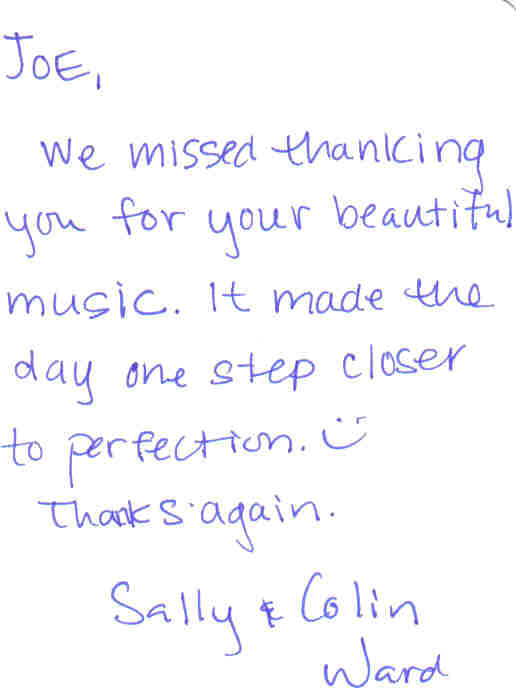 JOE,
We missed thanking
you for your beautiful
music. It made the
day one step closer
to perfection. :)
Thanks again.
Sally & Colin
Ward